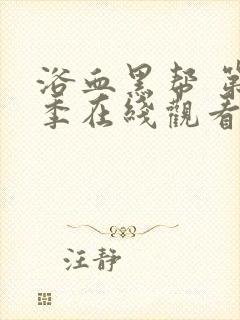 浴血黑帮 第
季在线觀看
汪静